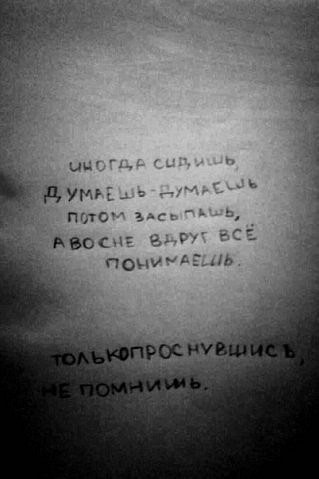 ИНОГДА СИДИШЬ,
ДУМАЕШЬ-ДУМАЕШЬ
ПОТОМ ЗАСЫПАШЬ,
А ВО СНЕ ВДРУГ ВСЁ
ПОНИМАЕШЬ.
ТОЛЬКО ПРОСНУВШИСЬ,
НЕ ПОМНИШЬ.